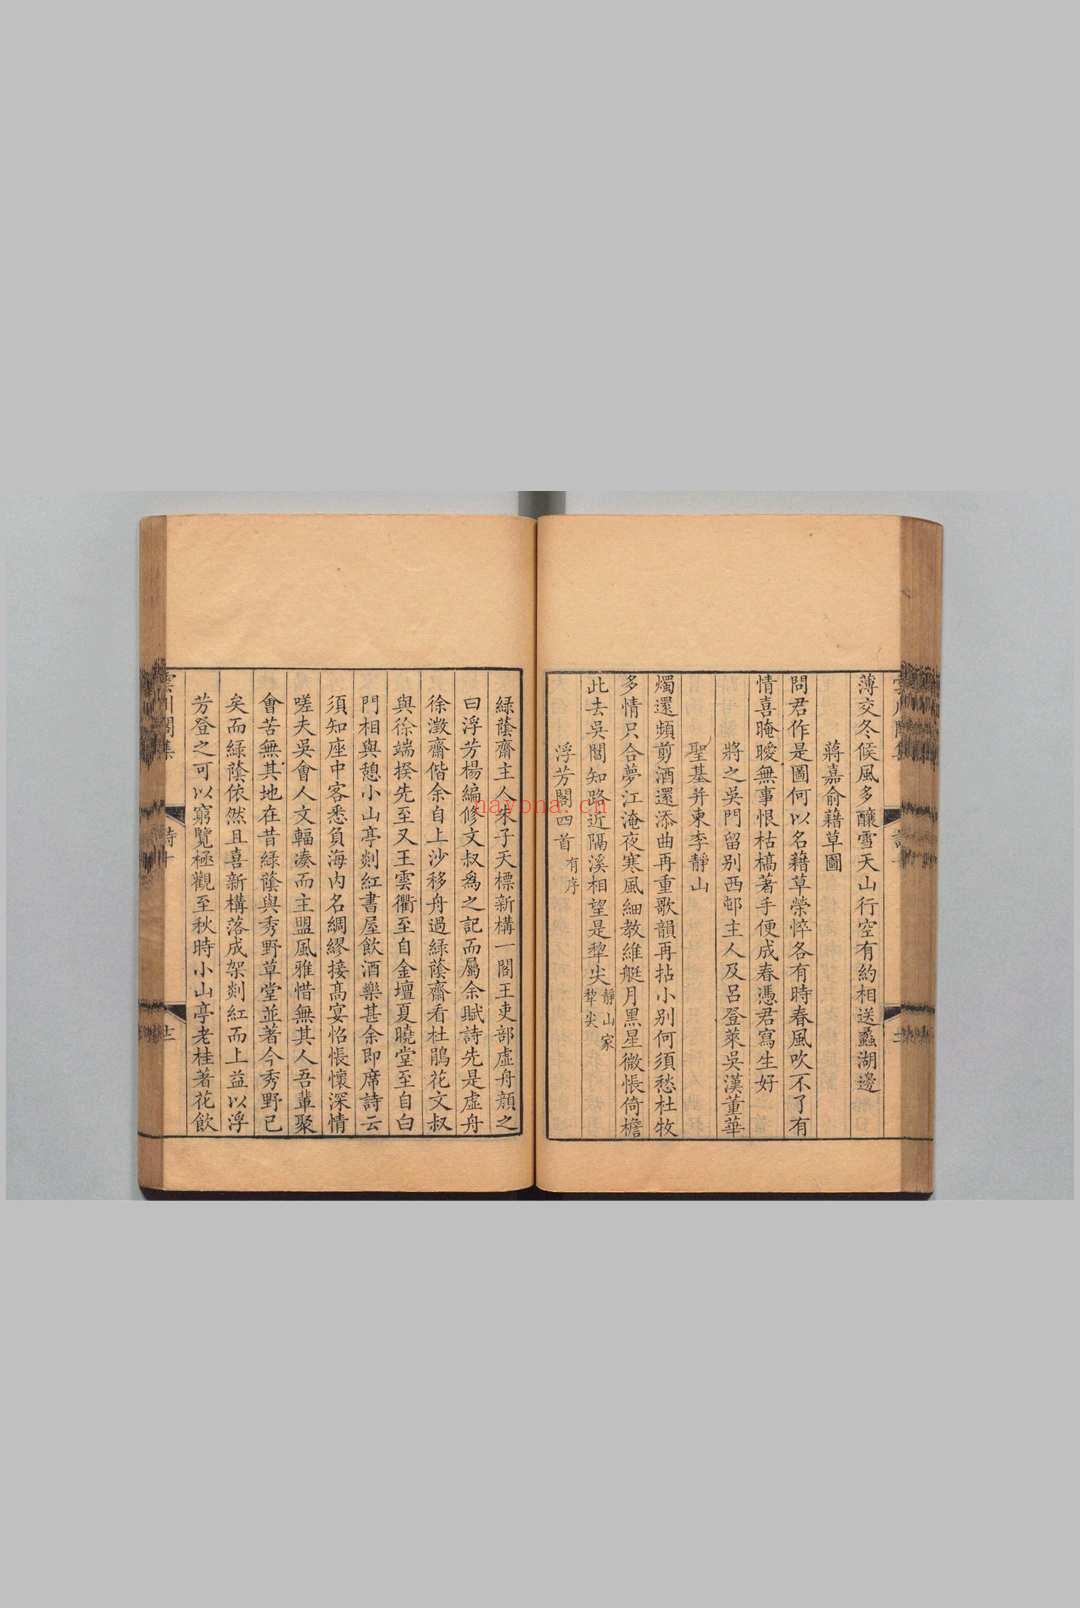 薄交冬候風多釀雪天山行空有約相送蠡湖邊
蔣嘉俞藉草圖
問君作是圖何以名藉草榮悴各有時春風吹不了有
情喜晻曖無事恨枯槁著手便成春憑君寫生好
將之吳門留别西邨主人及呂登萊吳漢董華
聖基并柬李靜山
燭還頻剪酒還添曲再重歌韻再拈小别何須愁杜牧
多情只合夢江淹夜寒風細教維艇月黑星微悵倚檐
此去吳閶知路近隔溪相望是犂尖靜山家犂尖
浮芳閣四首有序
綠蔭齋主人朱子天標新構一閣王吏部虛舟顔之
曰浮芳楊編修文叔爲之記而屬余賦詩先是虛舟
徐澂齋偕余自上沙移舟過綠蔭齋看杜鵑花文叔
與徐端揆先至又王雲衢至自金壇夏曉堂至自白
門相與憩小山亭剡紅書屋飲酒樂甚余即席詩云
須知座中客悉負海内名綢繆接高宴怊悵懷深情
嗟夫吳會人文輻湊而主盟風雅惜無其人吾輩聚
會苦無其地在昔綠蔭與秀野草堂並著今秀野已
矣而綠蔭依然且喜新構落成架剡紅而上益以浮
芳登之可以窮覽極觀至秋時小山亭老桂著花飲
hayona.cn